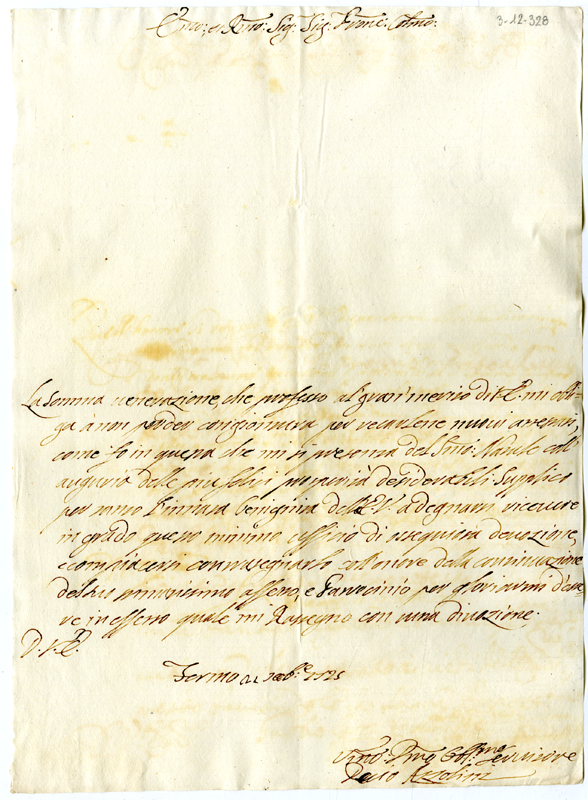 3-12-328
Emo: e Rmo: Sig: Sig: Prone: Colmo:
La somma venerazione, che professo al gran' merito di V.E. mi obli-
ga à non perder congiontura per recarlene nuovi attestati,
come fo in questa che mi si presenta del Smo: Natale coll'
augurio delle più felici prosperità desiderabili. Supplico
per tanto l'innata benignità dell'E.V. a degnarsi ricevere
in grado questo minimo ufficio di ossequiosa devozione,
e compiacersi contrasegnarlo coll'onore della continuazione
del suo autorevolissimo affetto, e Patrocinio per gloriarmi d'esse-
re in effetto quale mi rassegno con tutta divozione.
D.V.E.
Fermo 1725
Umo: Devmo Obmo Servitore
Decio Azzolini